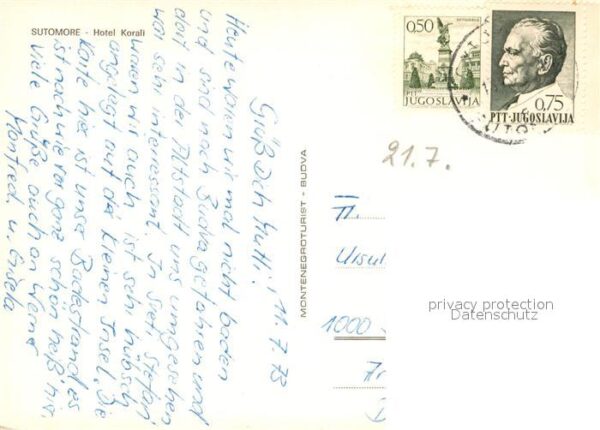 SUTOMORE - Hotel Korali
Grüß Dich Mutti! 11.7.73
Heute waren wir mal nicht baden
und sind nach Budva gefahren und
dort in der Altstadt uns umgesehen
war sehr interessant. In Sveti Stefan
waren wir auch ist sehr hübsch
angelegt auf der kleinen Insel. Die
Karte hier ist unser Badestrand es
ist nach wie vor ganz schön heiß hier.
Viele Grüße auch an Werner
Manfred u. Gisela
MONTENEGROTURIST - BUDVA
0,50
PTT
JUGOSLAVIJA
0,75
PTT-JUGOSLAVIJA
21.7.
Fr.
Ursul
1000
privacy protection
Datenschutz